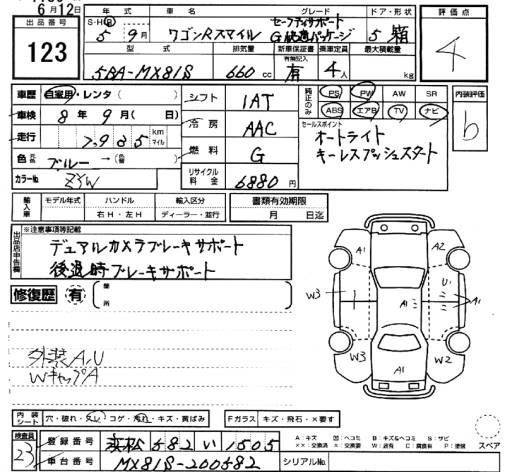 6月12日
出品番号
123
年式
車名
グレード
ドア・形状
評価点
S・H・R
5年 9月
ワゴンRスマイル
セーフティサポート
G快適パッケージ
5 箱
4
型式
排気量
新車保証書
有無記入
乗車定員
最大積載量
5BA-MX81S
660cc
有
4人
kg
車歴
自家用・レンタ( )
車検
8年 9月( 日)
走行
km
マイル
色
元色
ブルー → (替色 )
カラーNo.
ZYW
シフト
1AT
冷房
AAC
燃料
G
リサイクル料金
6880円
純正のみ
PS
PW
AW
SR
ABS
エアB
TV
ナビ
内装評価
b
セールスポイント
オートライト
キーレスプッシュスタート
輸入車
モデル年式
ハンドル
輸入区分
書類有効期限
右H・左H
ディーラー・並行
月 日迄
出品店申告欄
※注意事項等記載
デュアルカメラブレーキサポート
後退時ブレーキサポート
修復歴
有
箇所
外装A,U
WキャップA
A1
A2
W3
U1
A1
A1
W3
W2
A1
内装シート
穴・破れ・スレ・コゲ・汚れ・キズ・黄ばみ
Fガラス
キズ・飛石・×要す
A:キズ
U:ヘコミ
B:キズ&ヘコミ
S:サビ
スペア
検査員
23
登録番号
浜松 582 い 1505
車台番号
MX81S-200582
シリアルNo.